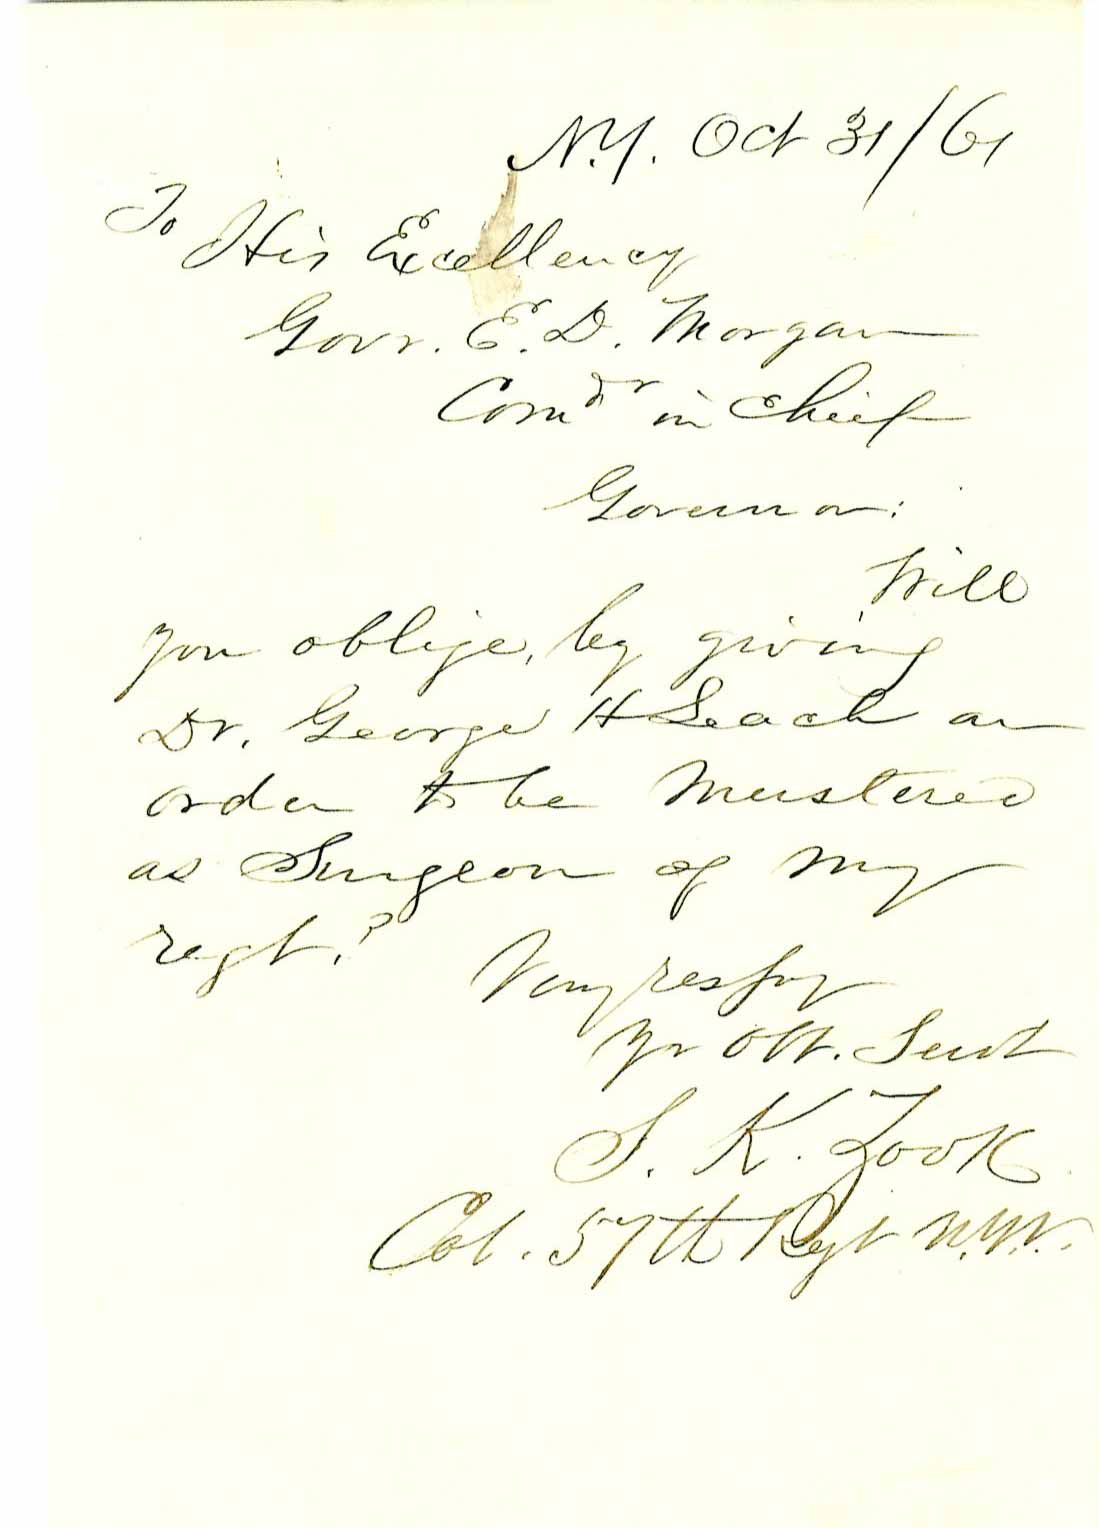 N.Y. Oct 31/61
To His Excellency
Govr. E. D. Morgan
Comdr in Chief
Governor:
Will
you oblige, by giving
Dr. George H Leach an
order to be mustered
as Surgeon of my
regt.?
Very respy
Yr obt. Servt
S. K. Zook
Col. 57th Regt N.Y.V.